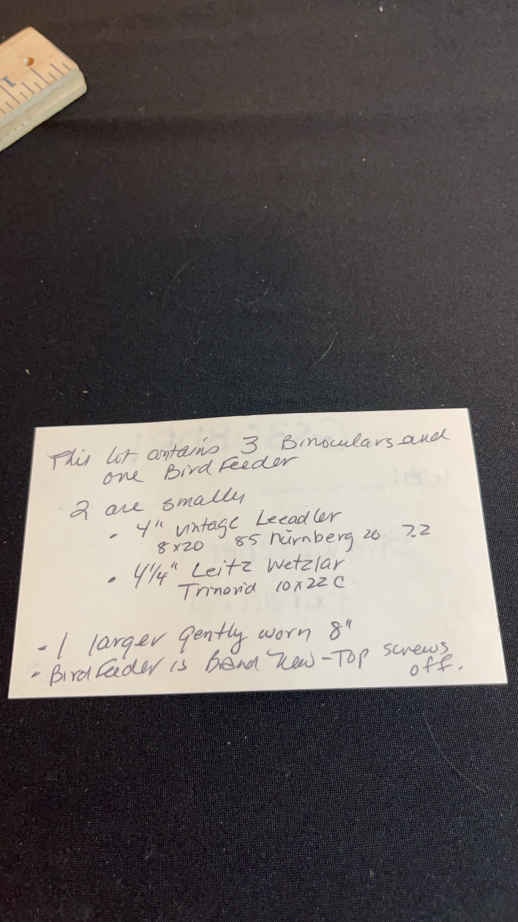 This lot contains 3 Binoculars and
one Bird Feeder
2 are smally
• 4" vintage Leeadler
8x20 85 Nürnberg 20 7.2
• 4 1/4" Leitz Wetzlar
Trinovid 10x22 C
- 1 larger gently worn 8"
- Bird Feeder is Band New - Top screws
off.